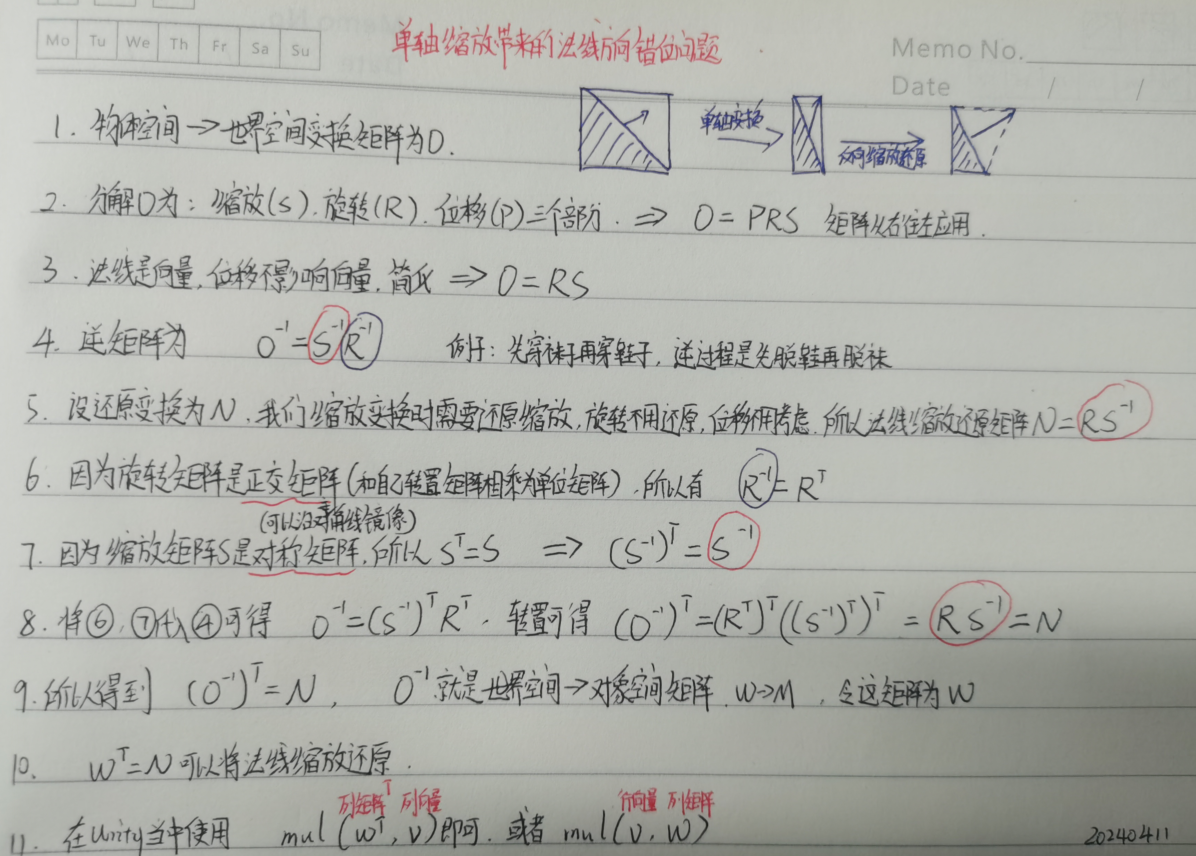 Mo Tu We Th Fr Sa Su
单轴缩放带来的法线方向错位问题
Memo No.
Date / /
1. 物体空间→世界空间变换矩阵为O.
单轴变换
反向缩放还原
2. 分解O为: 缩放(S). 旋转(R). 位移(P)三个部分. ⇒ O=PRS 矩阵从右往左应用.
3. 法线是向量, 位移不影响向量, 简化 ⇒ O=RS
4. 逆矩阵为 O⁻¹=S⁻¹R⁻¹ 例子: 先穿袜子再穿鞋子, 逆过程是先脱鞋再脱袜
5. 设还原变换为N, 我们缩放变换时需要还原缩放, 旋转不用还原, 位移不用考虑. 所以法线缩放还原矩阵N=RS⁻¹
6. 因为旋转矩阵是正交矩阵(和自己转置矩阵相乘为单位矩阵), 所以有 R⁻¹=Rᵀ
(可以沿对角线镜像)
7. 因为缩放矩阵S是对称矩阵, 所以 Sᵀ=S ⇒ (S⁻¹)ᵀ=S⁻¹
8. 将⑥, ⑦代入④可得 O⁻¹=(S⁻¹)ᵀRᵀ, 转置可得 (O⁻¹)ᵀ=(Rᵀ)ᵀ((S⁻¹)ᵀ)ᵀ = RS⁻¹=N
9. 所以得到 (O⁻¹)ᵀ=N, O⁻¹就是世界空间→对象空间矩阵 W→M, 令这矩阵为W
10. Wᵀ=N可以将法线缩放还原.
列矩阵ᵀ 列向量 行向量 列矩阵
11. 在Unity当中使用 mul(Wᵀ, V)即可. 或者 mul(V, W)
20240411